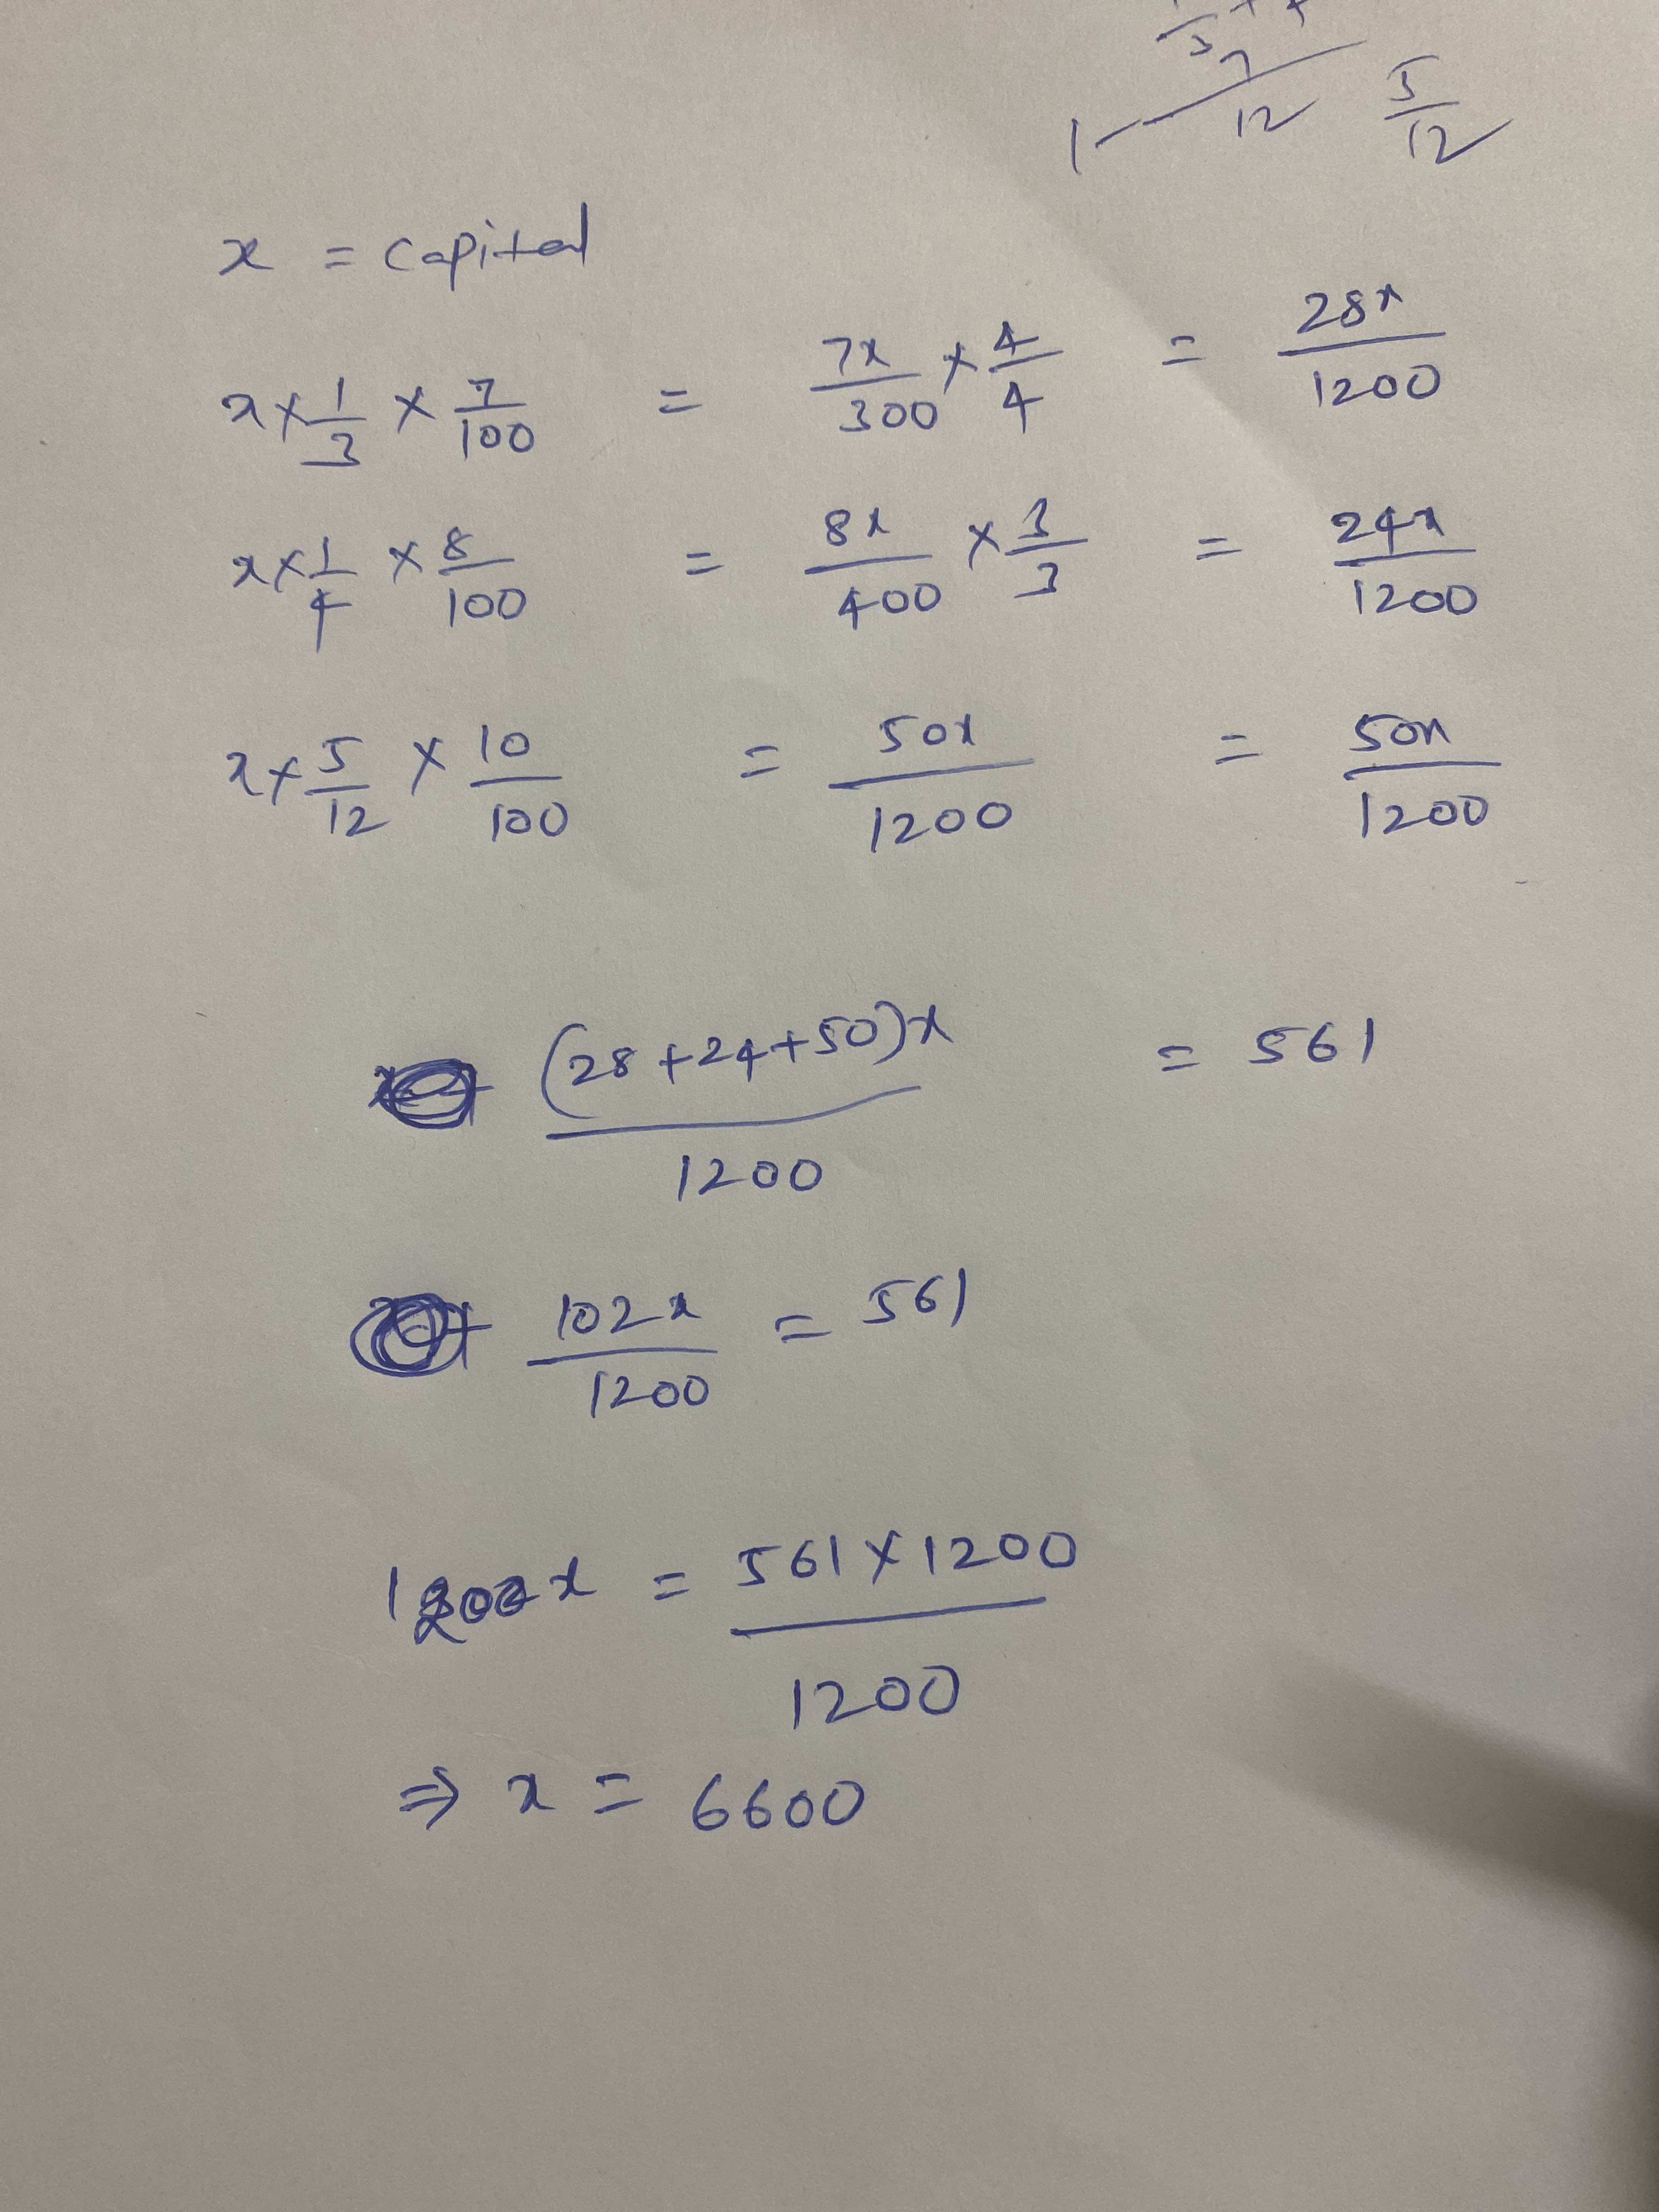 7/12 5/12
1 -
x = capital
x × 1/3 × 7/100 = 7x/300 × 4/4 = 28x/1200
x × 1/4 × 8/100 = 8x/400 × 3/3 = 24x/1200
x × 5/12 × 10/100 = 50x/1200 = 50x/1200
(28+24+50)x/1200 = 561
102x/1200 = 561
x = 561×1200/1200
⇒ x = 6600